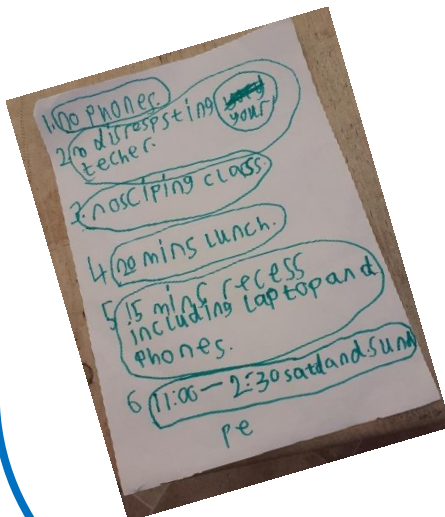 1. no phones.
2 no disrespsting your
techer.
3. nosciping class.
4 20 mins lunch.
5 15 mins recess
including laptop and
phones.
6 11:00 — 2:30 satdand.sunn
pe